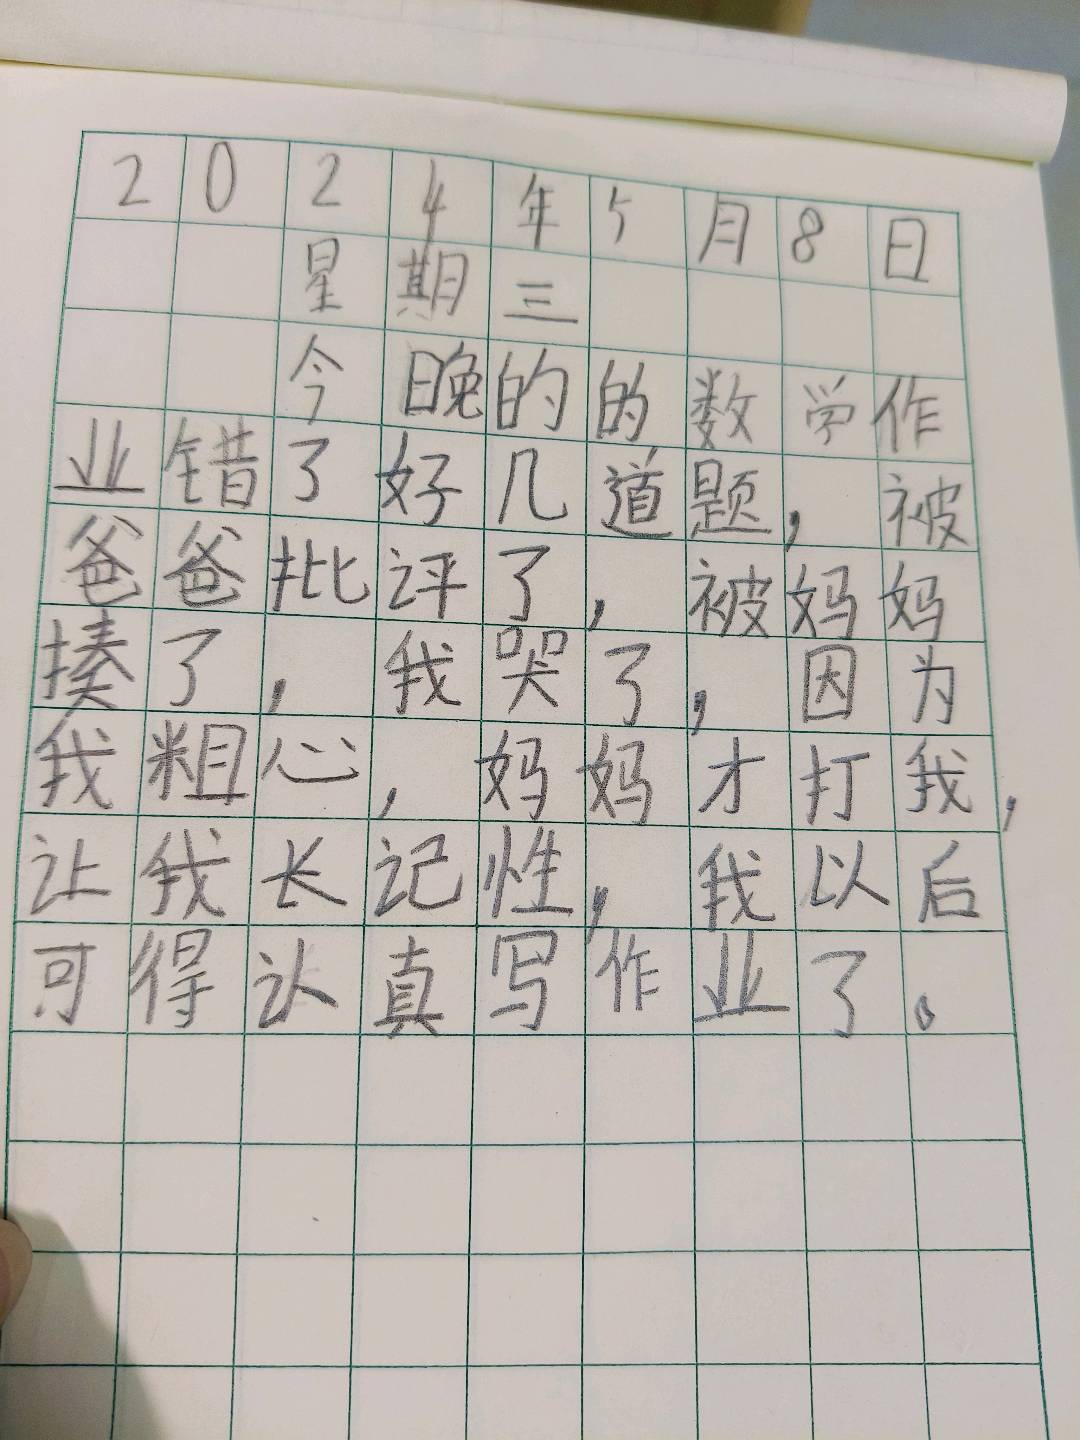 2024年5月8日
星期三
今晚的的数学作
业错了好几道题，被
爸爸批评了，被妈妈
揍了，我哭了，因为
我粗心，妈妈才打我，
让我长记性，我以后
可得认真写作业了。